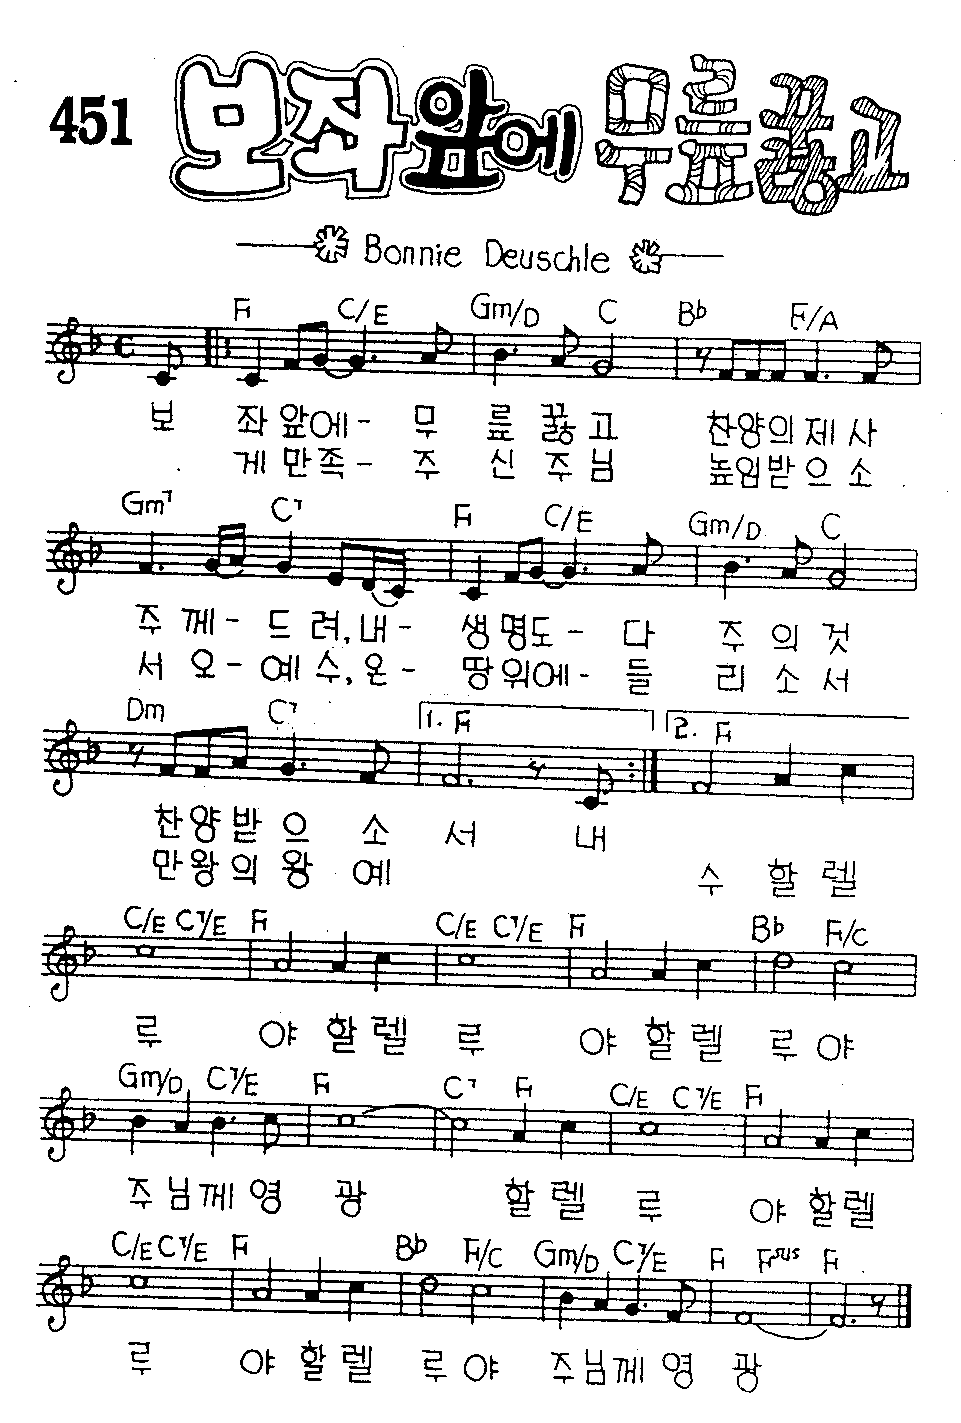 451 보좌앞에 무릎꿇고
Bonnie Deuschle
F C/E Gm/D C B♭ F/A
보 좌앞에- 무 릎 꿇 고 찬양의제사
게만족- 주 신 주 님 높임받으소
Gm7 C7 F C/E Gm/D C
주 께- 드 려, 내- 생명도- 다 주 의 것
서 오- 예 수, 온- 땅위에- 들 리 소 서
Dm C7 1. F 2. F
찬양받 으 소 서 내
만왕의 왕 예 수 할 렐
C/E C7/E F C/E C7/E F B♭ F/C
루 야 할 렐 루 야 할 렐 루 야
Gm/D C7/E F C7 F C/E C7/E F
주님께 영 광 할 렐 루 야 할렐
C/E C7/E F B♭ F/C Gm/D C7/E F Fsus F
루 야 할 렐 루 야 주님께 영 광